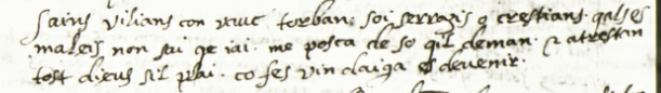 sains vilians con xxuc torban: soi serrazis o crestians. qals es
maleis non sai qe iai. me posca de so qil deman. z atrestan
tost dieus sil plai. co fes vin daiga es devenir.